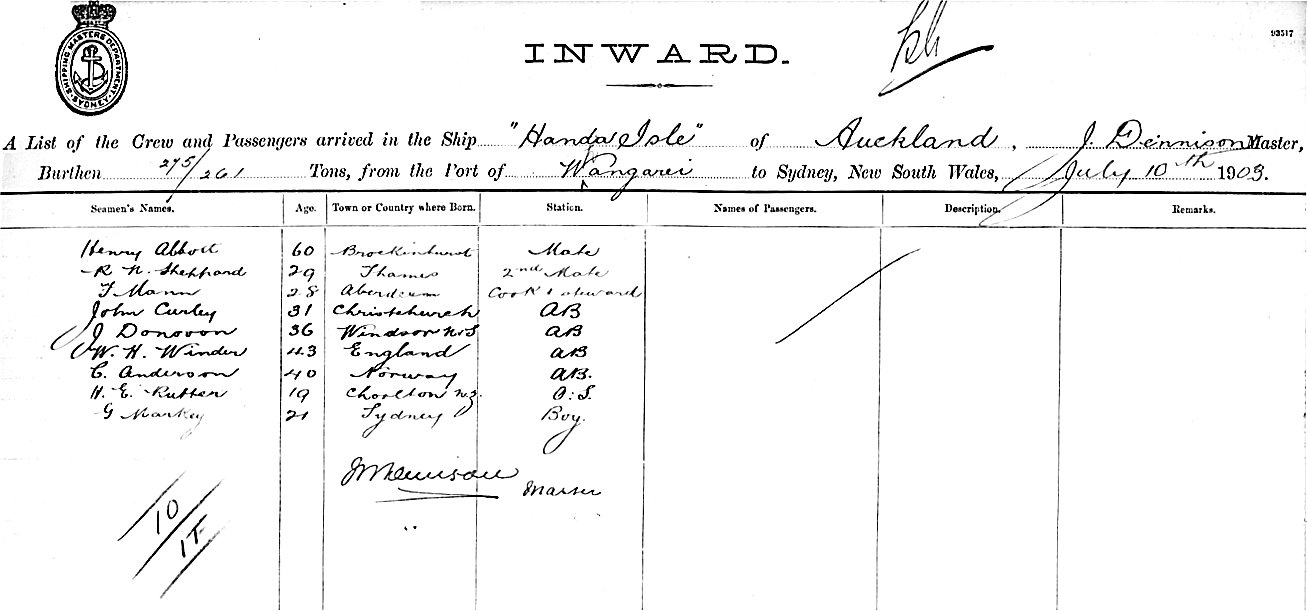 SHIPPING MASTERS DEPARTMENT SYDNEY
93517
INWARD.
A List of the Crew and Passengers arrived in the Ship "Handa Isle" of Auckland, J. Dennison Master,
Burthen 275/261 Tons, from the Port of Wangarei to Sydney, New South Wales, July 10th 1903.
Seamen's Names. Age. Town or Country where Born. Station. Names of Passengers. Description. Remarks.
Henry Abbott 60 Brockinhurst Mate
R N. Sheppard 29 Thames 2nd Mate
F Mann 28 Aberdeen Cook & steward
John Curley 31 Christchurch AB
J Donovon 36 Windsor N.S AB
W. H. Winder 43 England AB
C. Anderson 40 Norway AB.
H. E. Rutter 19 Charlton N.Z. O.S.
G Markey 21 Sydney Boy.
Master
10